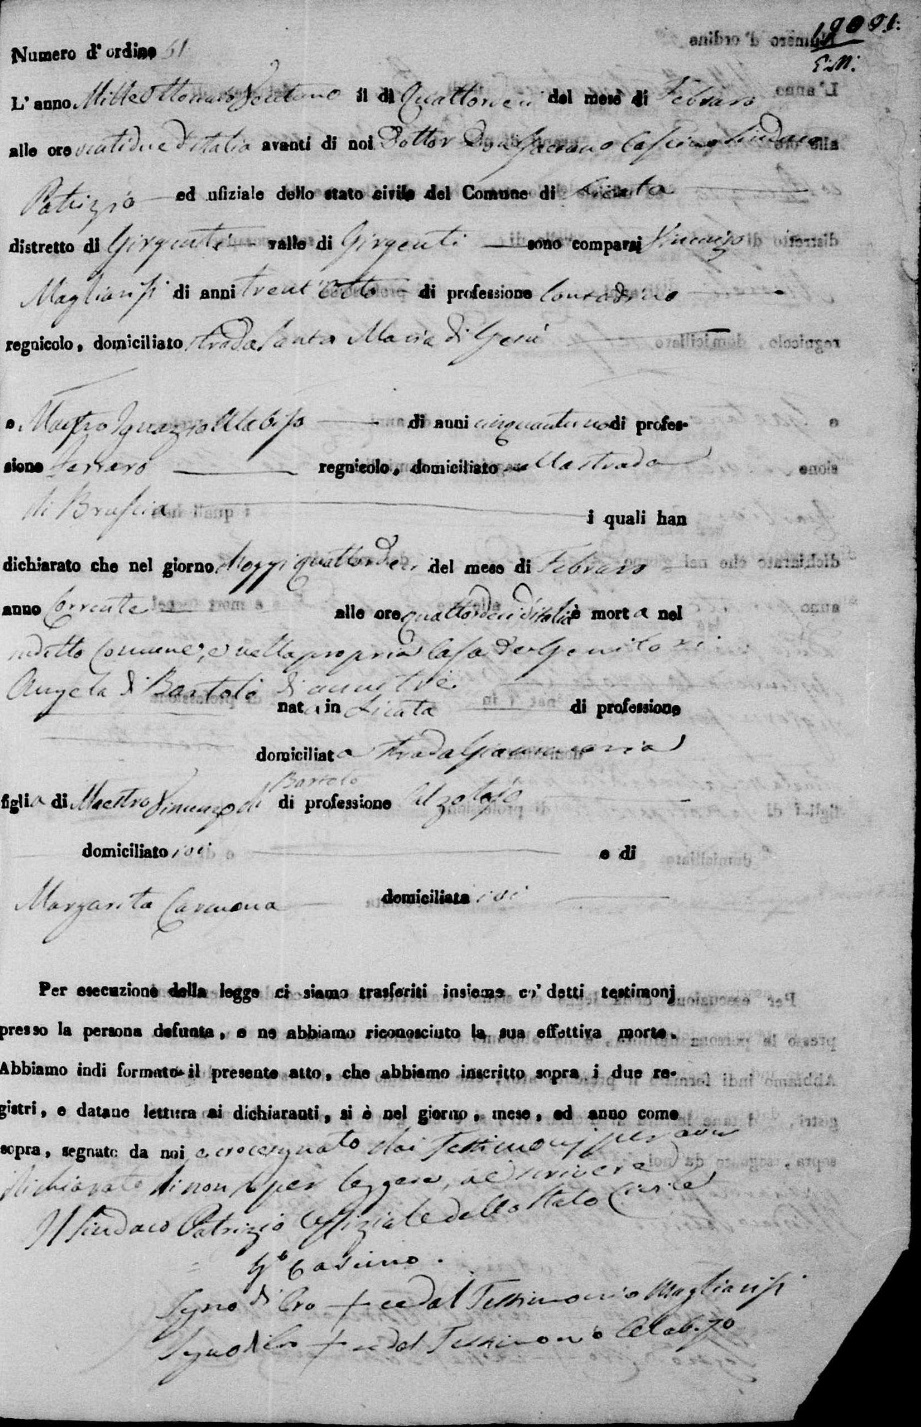 Numero d'ordine 51
L'anno Mille Ottocento Ventuno il di Quattordeci del mese di Febraro
alle ore ventidue d'Italia avanti di noi Dottor Don Gaetano Sindaco
Patrizio ed ufiziale dello stato civile del Comune di Licata
distretto di Girgenti valle di Girgenti sono comparsi Vincenzo
Magliarisi di anni trent'Otto di professione
regnicolo, domiciliato strada Santa Maria di Gesù
e Mastro Ignazio Alabiso di anni cinquantuno di profes-
sione Ferraro regnicolo, domiciliato nella strada
di i quali han
dichiarato che nel giorno d'oggi quattordeci del mese di Febraro
anno Corrente alle ore quattordeci d'Italia è morta nel
sudetto Comune, e nella propria Casa de Genitori
Angela di Bartolo di anni tre
nata in Licata di professione
domiciliata strada
figlia di Maestro Vincenzo di Bartolo di professione Calzolajo
domiciliato ivi e di
Margarita Carmona domiciliata ivi
Per esecuzione della legge ci siamo trasferiti insieme co' detti testimonj
presso la persona defunta, e ne abbiamo riconosciuto la sua effettiva morte.
Abbiamo indi formato il presente atto, che abbiamo inscritto sopra i due re-
gistri, e datane lettura ai dichiaranti, si è nel giorno, mese, ed anno come
sopra, segnato da noi e crocesegnato dai Testimonj per aver
dichiarato di non saper leggere, nè scrivere
Il Sindaco Patrizio Uffiziale dello Stato Civile
Segno di Cro + ce del Testimonio Magliarisi
Segno di Cro + ce del Testimonio Alabiso